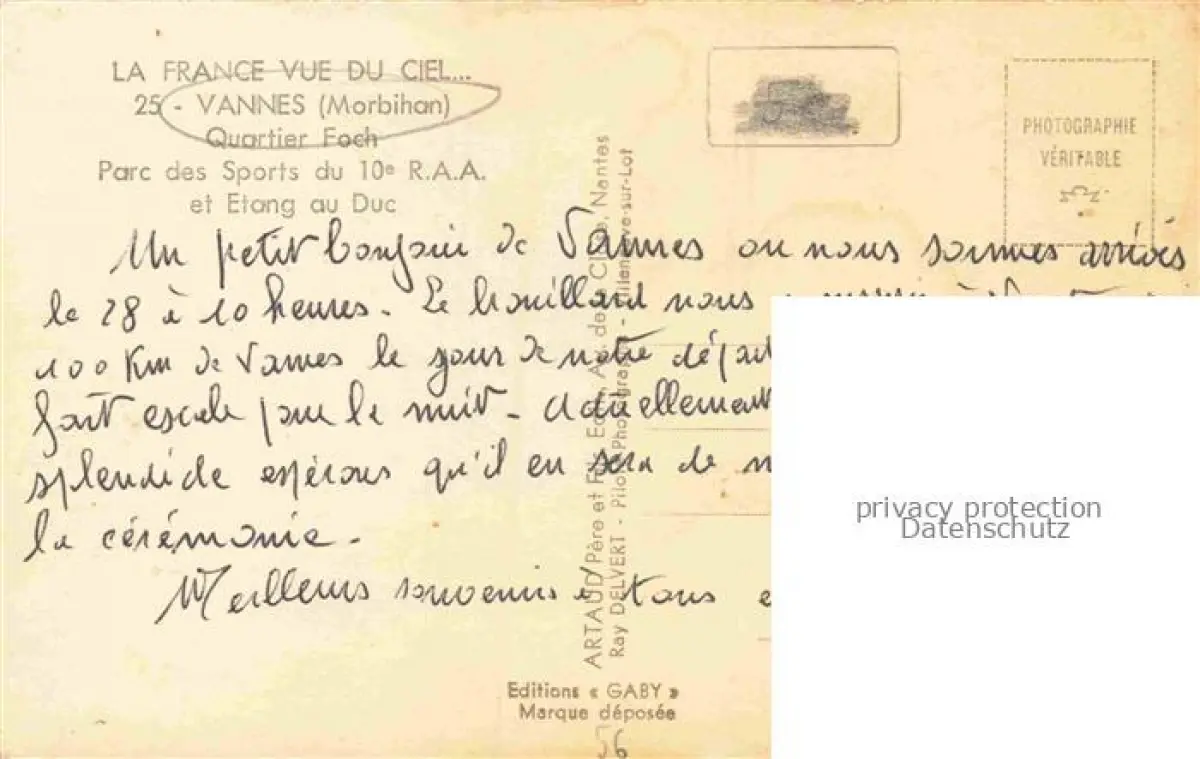 LA FRANCE VUE DU CIEL...
25 - VANNES (Morbihan)
Quartier Foch
Parc des Sports du 10e R.A.A.
et Etang au Duc
PHOTOGRAPHIE
VÉRITABLE
Un petit bonjour de Vannes ou nous sommes arrivés
le 28 à 10 heures. Le brouillard nous
100 Km de Vannes le jour de notre départ
fait escale pour la nuit - Actuellement
splendide espérons qu'il en sera de
la cérémonie.
Meilleurs souvenirs à tous
ARTAUD Père et Fils, Edit., Av. de la Close, Nantes
Ray DELVERT - Pilote Photographe - Villeneuve-sur-Lot
Editions « GABY »
Marque déposée
56
privacy protection
Datenschutz